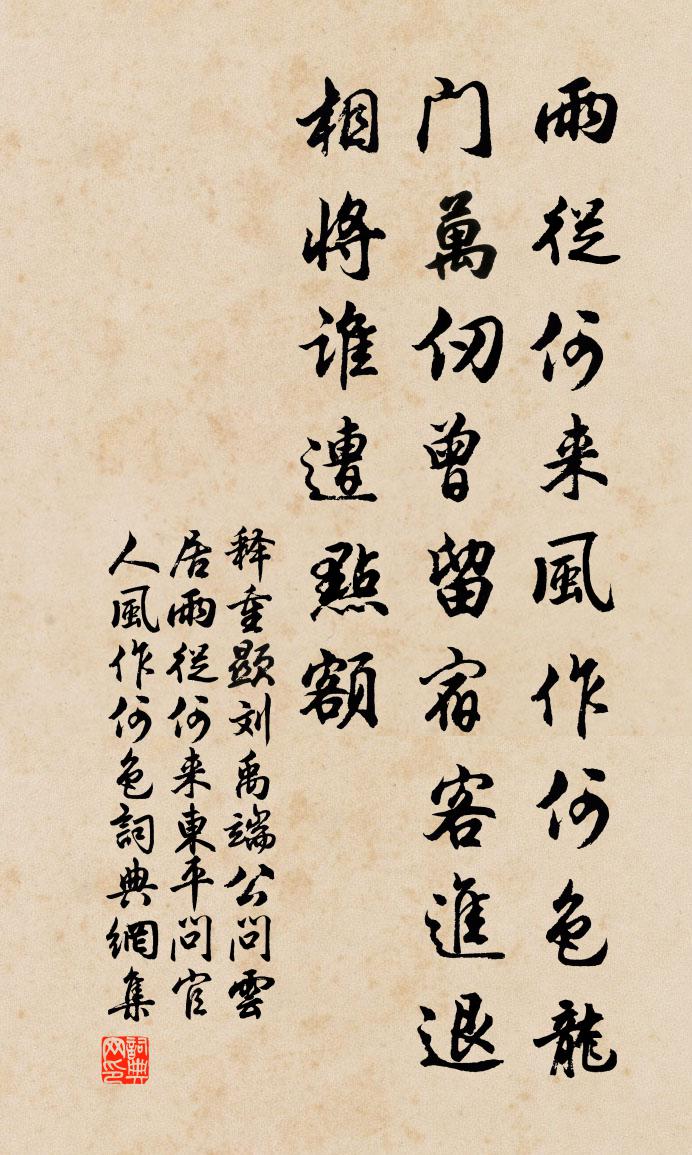 雨從何来風作何色龍
门萬仞曾留宿客進退
相将誰遭點額
释重顯刘禹端公問雲
居雨從何来東平問官
人風作何色詞典網集
詞典网印